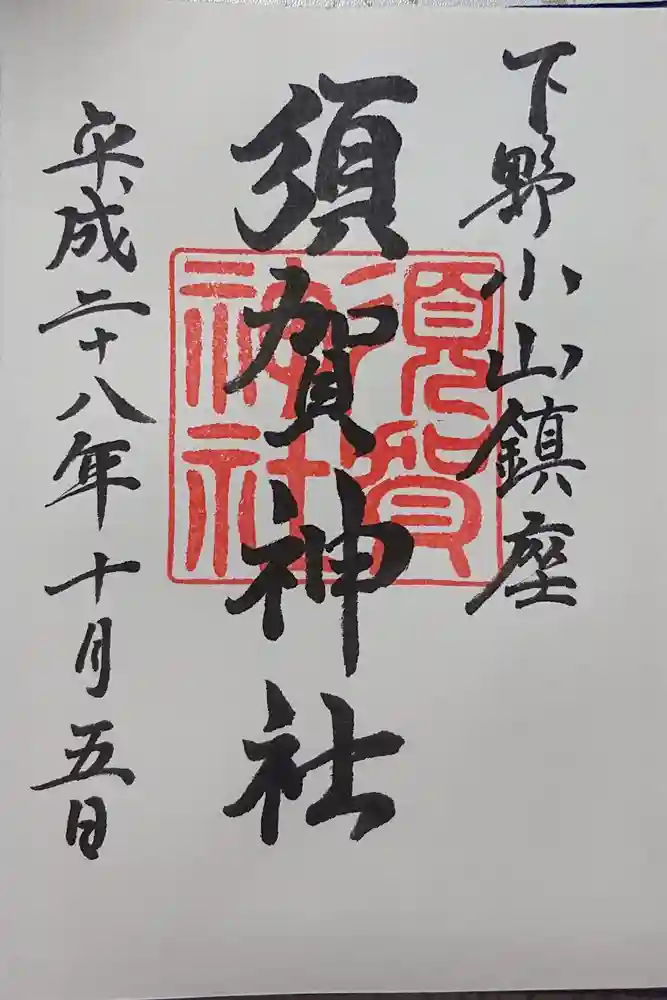 下野小山鎮座
須賀神社
須賀神社
平成二十八年十月五日